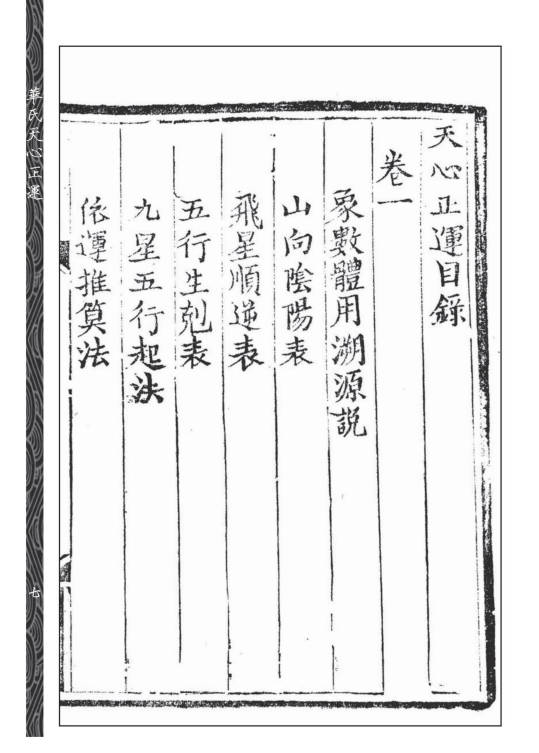 天心正運目錄
卷一
象數體用溯源說
山向陰陽表
飛星順逆表
五行生剋表
九星五行起法
依運推算法
華氏天心正運
七